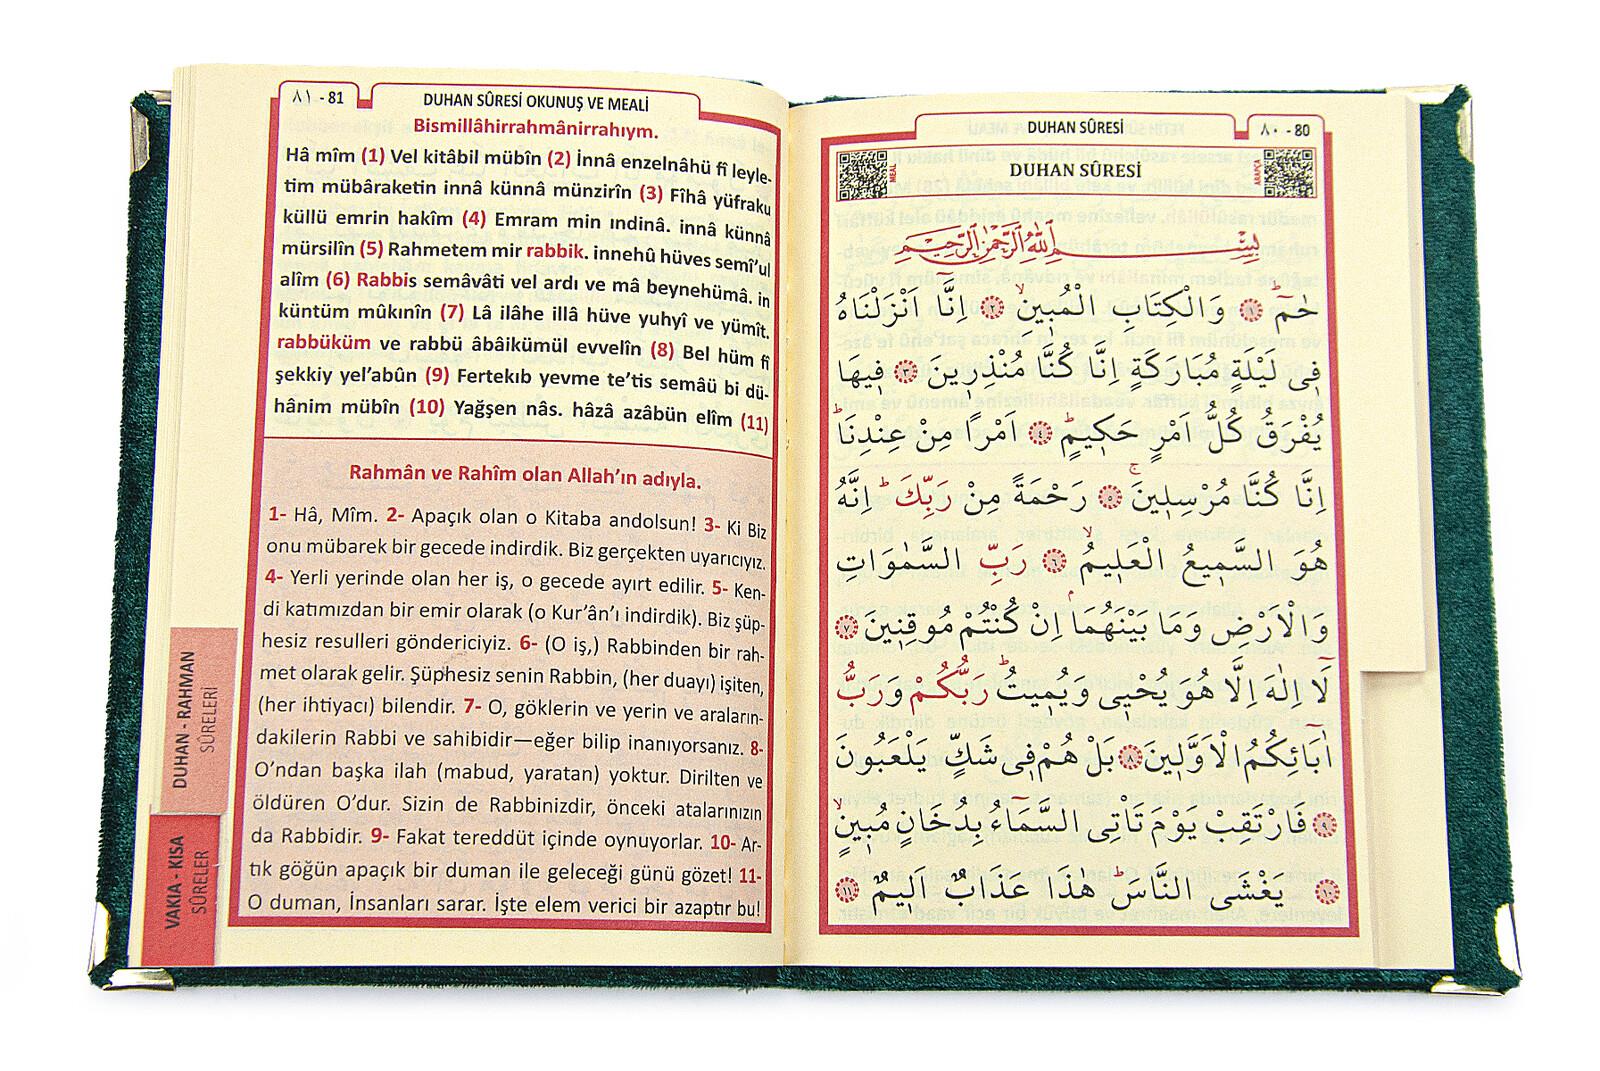 ٨١ - 81
DUHAN SÛRESİ OKUNUŞ VE MEALİ
Bismillâhirrahmânirrahıym.
Hâ mîm (1) Vel kitâbil mübîn (2) İnnâ enzelnâhü fî leyle-
tim mübâraketin innâ künnâ münzirîn (3) Fîhâ yüfraku
küllü emrin hakîm (4) Emram min ındinâ. innâ künnâ
mürsilîn (5) Rahmetem mir rabbik. innehû hüves semî’ul
alîm (6) Rabbis semâvâti vel ardı ve mâ beynehümâ. in
küntüm mûkınîn (7) Lâ ilâhe illâ hüve yuhyî ve yümît.
rabbüküm ve rabbü âbâikümül evvelîn (8) Bel hüm fî
şekkiy yel’abûn (9) Fertekıb yevme te’tis semâü bi dü-
hânim mübîn (10) Yağşen nâs. hâzâ azâbün elîm (11)
Rahmân ve Rahîm olan Allah’ın adıyla.
1- Hâ, Mîm. 2- Apaçık olan o Kitaba andolsun! 3- Ki Biz
onu mübarek bir gecede indirdik. Biz gerçekten uyarıcıyız.
4- Yerli yerinde olan her iş, o gecede ayırt edilir. 5- Ken-
di katımızdan bir emir olarak (o Kur’ân’ı indirdik). Biz şüp-
hesiz resulleri göndericiyiz. 6- (O iş,) Rabbinden bir rah-
met olarak gelir. Şüphesiz senin Rabbin, (her duayı) işiten,
(her ihtiyacı) bilendir. 7- O, göklerin ve yerin ve araların-
dakilerin Rabbi ve sahibidir—eğer bilip inanıyorsanız. 8-
O’ndan başka ilah (mabud, yaratan) yoktur. Dirilten ve
öldüren O’dur. Sizin de Rabbinizdir, önceki atalarınızın
da Rabbidir. 9- Fakat tereddüt içinde oynuyorlar. 10- Ar-
tık göğün apaçık bir duman ile geleceği günü gözet! 11-
O duman, İnsanları sarar. İşte elem verici bir azaptır bu!
DUHAN - RAHMAN
SÛRELERİ
VAKIA - KISA
SÛRELER
DUHAN SÛRESİ
٨٠ - 80
MEAL
DUHAN SÛRESİ
ARAPÇA
بِسْمِ اللّٰهِ الرَّحْمٰنِ الرَّحِيمِ
حٰمٓ ۚ ﴿١﴾ وَالْكِتَابِ الْمُبِينِ ۙ ﴿٢﴾ اِنَّٓا اَنْزَلْنَاهُ
فِى لَيْلَةٍ مُبَارَكَةٍ اِنَّا كُنَّا مُنْذِرِينَ ﴿٣﴾ فِيهَا
يُفْرَقُ كُلُّ اَمْرٍ حَكِيمٍ ۜ ﴿٤﴾ اَمْرًا مِنْ عِنْدِنَا ۜ
اِنَّا كُنَّا مُرْسِلِينَ ۚ ﴿٥﴾ رَحْمَةً مِنْ رَبِّكَ ۜ اِنَّهُ
هُوَ السَّمِيعُ الْعَلِيمُ ۙ ﴿٦﴾ رَبِّ السَّمٰوَاتِ
وَالْاَرْضِ وَمَا بَيْنَهُمَا ۢ اِنْ كُنْتُمْ مُوقِنِينَ ﴿٧﴾
لَٓا اِلٰهَ اِلَّا هُوَ يُحْيِى وَيُمِيتُ ۜ رَبُّكُمْ وَرَبُّ
اٰبَٓائِكُمُ الْاَوَّلِينَ ﴿٨﴾ بَلْ هُمْ فِى شَكٍّ يَلْعَبُونَ
﴿٩﴾ فَارْتَقِبْ يَوْمَ تَاْتِى السَّمَٓاءُ بِدُخَانٍ مُبِينٍ ۙ
﴿١٠﴾ يَغْشَى النَّاسَ ۜ هٰذَا عَذَابٌ اَلِيمٌ ﴿١١﴾